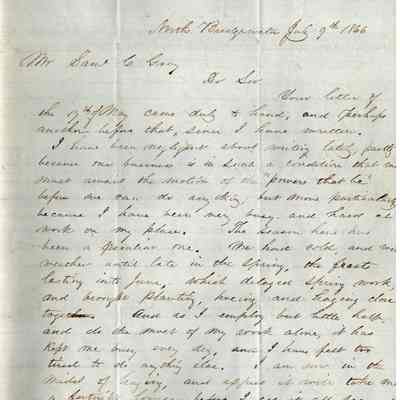 North Bridgewater July 9th 1866
Mr Saml C Gray
Dr Sir
Your letter of
the 17th of May came duly to hand, and perhaps
another before that, since I have written.
I have been negligent about writing lately, partly
because our business is in such a condition that we
must await the motion of the "powers that be"
before we can do anything but more particularly
because I have been very busy and hard at
work on my place. The season here has
been a peculiar one. We had cold and wet
weather until late in the spring, the frost
lasting into June, which delayed spring work,
and brought planting, hoeing and haying close
together. And as I employ but little help
and do the most of my work alone, it has
kept me busy every day, and I have felt too
tired to do anything else. I am now in the
midst of haying, and it will take me
a